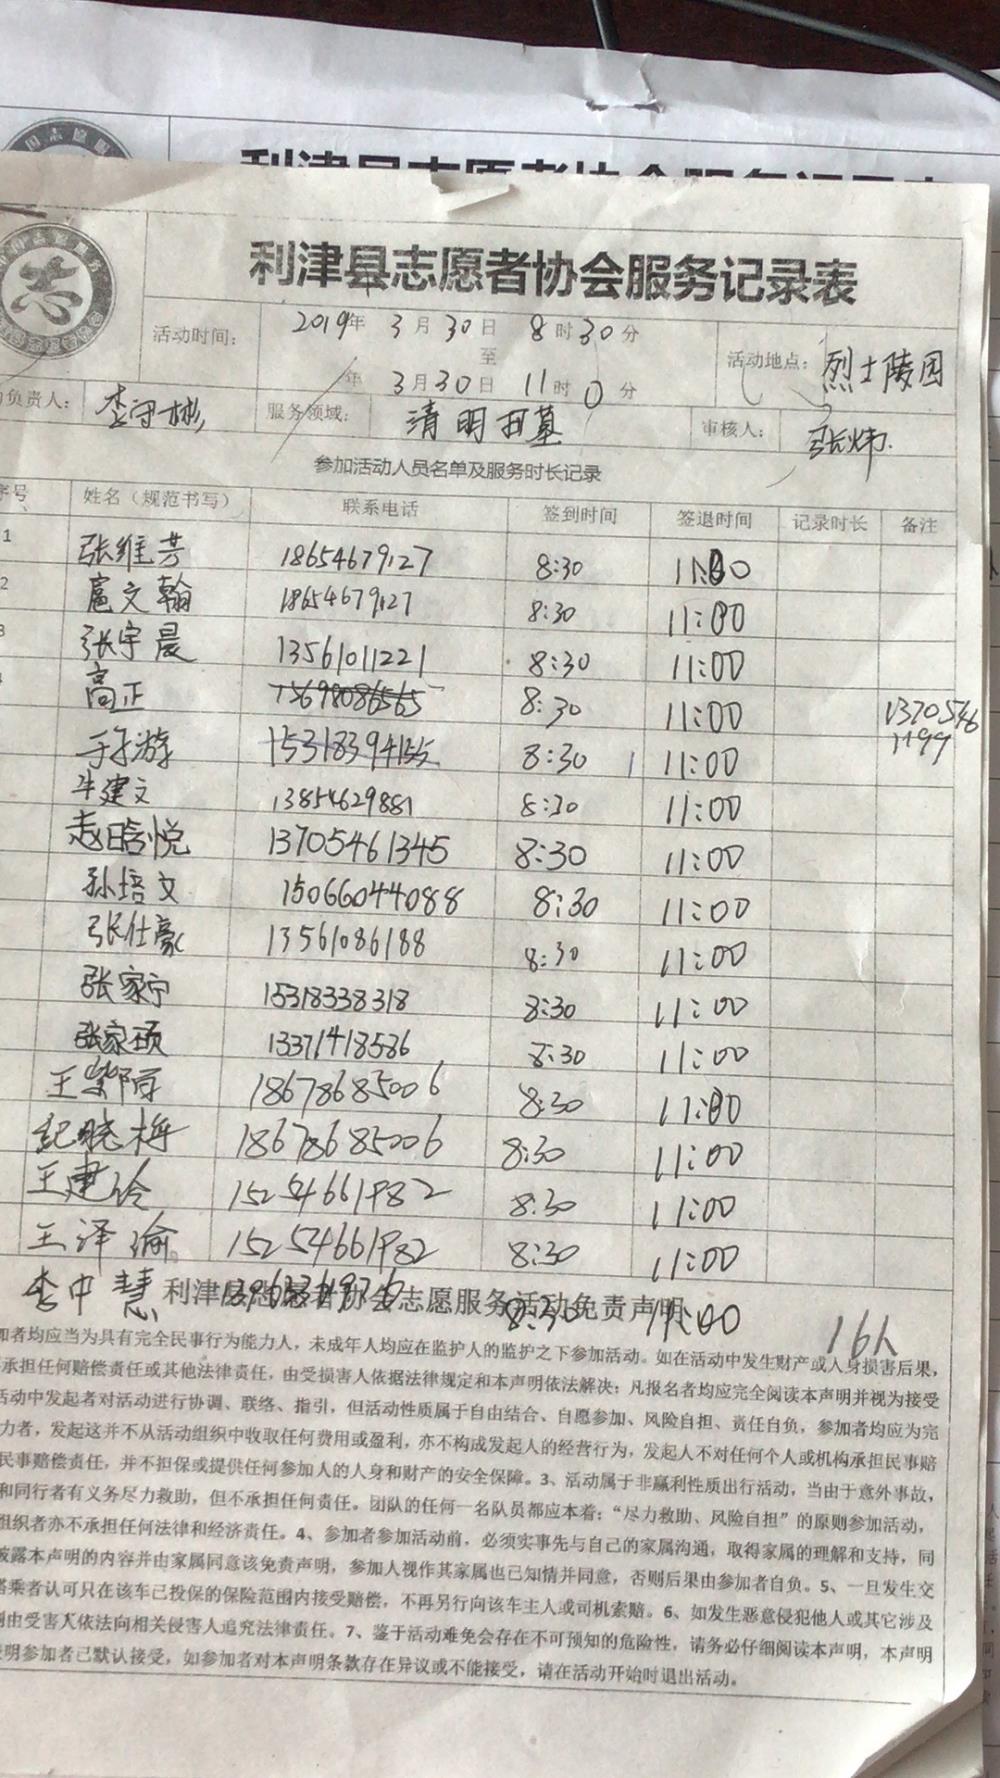 利津县志愿者协会服务记录表
活动时间： 2019年 3月30日 8时30分
至
年 3月30日 11时0分
活动地点： 烈士陵园
负责人： 李守彬 服务领域： 清明扫墓 审核人： 张炜
参加活动人员名单及服务时长记录
序号 姓名（规范书写） 联系电话 签到时间 签退时间 记录时长 备注
1 张维芳 18654679127 8:30 11:00
2 扈文翰 18654679127 8:30 11:00
3 张宇晨 13561011221 8:30 11:00
高正 15698086565 8:30 11:00 13705461199
于子游 15318394155 8:30 11:00
牛建文 13854629881 8:30 11:00
赵晗悦 13705461345 8:30 11:00
孙培文 15066044088 8:30 11:00
张仕豪 13561086188 8:30 11:00
张家宁 15318338318 8:30 11:00
张家硕 13371418586 8:30 11:00
王 18678685006 8:30 11:00
纪晓梅 18678685006 8:30 11:00
王建玲 15254661982 8:30 11:00
王泽瑜 15254661982 8:30 11:00
李中慧 8:30 11:00
利津县志愿者协会志愿服务活动免责声明
16人
加者均应当为具有完全民事行为能力人，未成年人均应在监护人的监护之下参加活动。如在活动中发生财产或人身损害后果，
承担任何赔偿责任或其他法律责任，由受损害人依据法律规定和本声明依法解决；凡报名者均应完全阅读本声明并视为接受
活动中发起者对活动进行协调、联络、指引，但活动性质属于自由结合、自愿参加、风险自担、责任自负，参加者均应为完
力者，发起这并不从活动组织中收取任何费用或盈利，亦不构成发起人的经营行为，发起人不对任何个人或机构承担民事赔
民事赔偿责任，并不担保或提供任何参加人的人身和财产的安全保障。3、活动属于非赢利性质出行活动，当由于意外事故，
和同行者有义务尽力救助，但不承担任何责任。团队的任何一名队员都应本着：“尽力救助、风险自担”的原则参加活动，
组织者亦不承担任何法律和经济责任。4、参加者参加活动前，必须实事先与自己的家属沟通，取得家属的理解和支持，同
披露本声明的内容并由家属同意该免责声明，参加人视作其家属也已知情并同意，否则后果由参加者自负。5、一旦发生交
搭乘者认可只在该车已投保的保险范围内接受赔偿，不再另行向该车主人或司机索赔。6、如发生恶意侵犯他人或其它涉及
则由受害人依法向相关侵害人追究法律责任。7、鉴于活动难免会存在不可预知的危险性，请务必仔细阅读本声明，本声明
明参加者已默认接受，如参加者对本声明条款存在异议或不能接受，请在活动开始时退出活动。